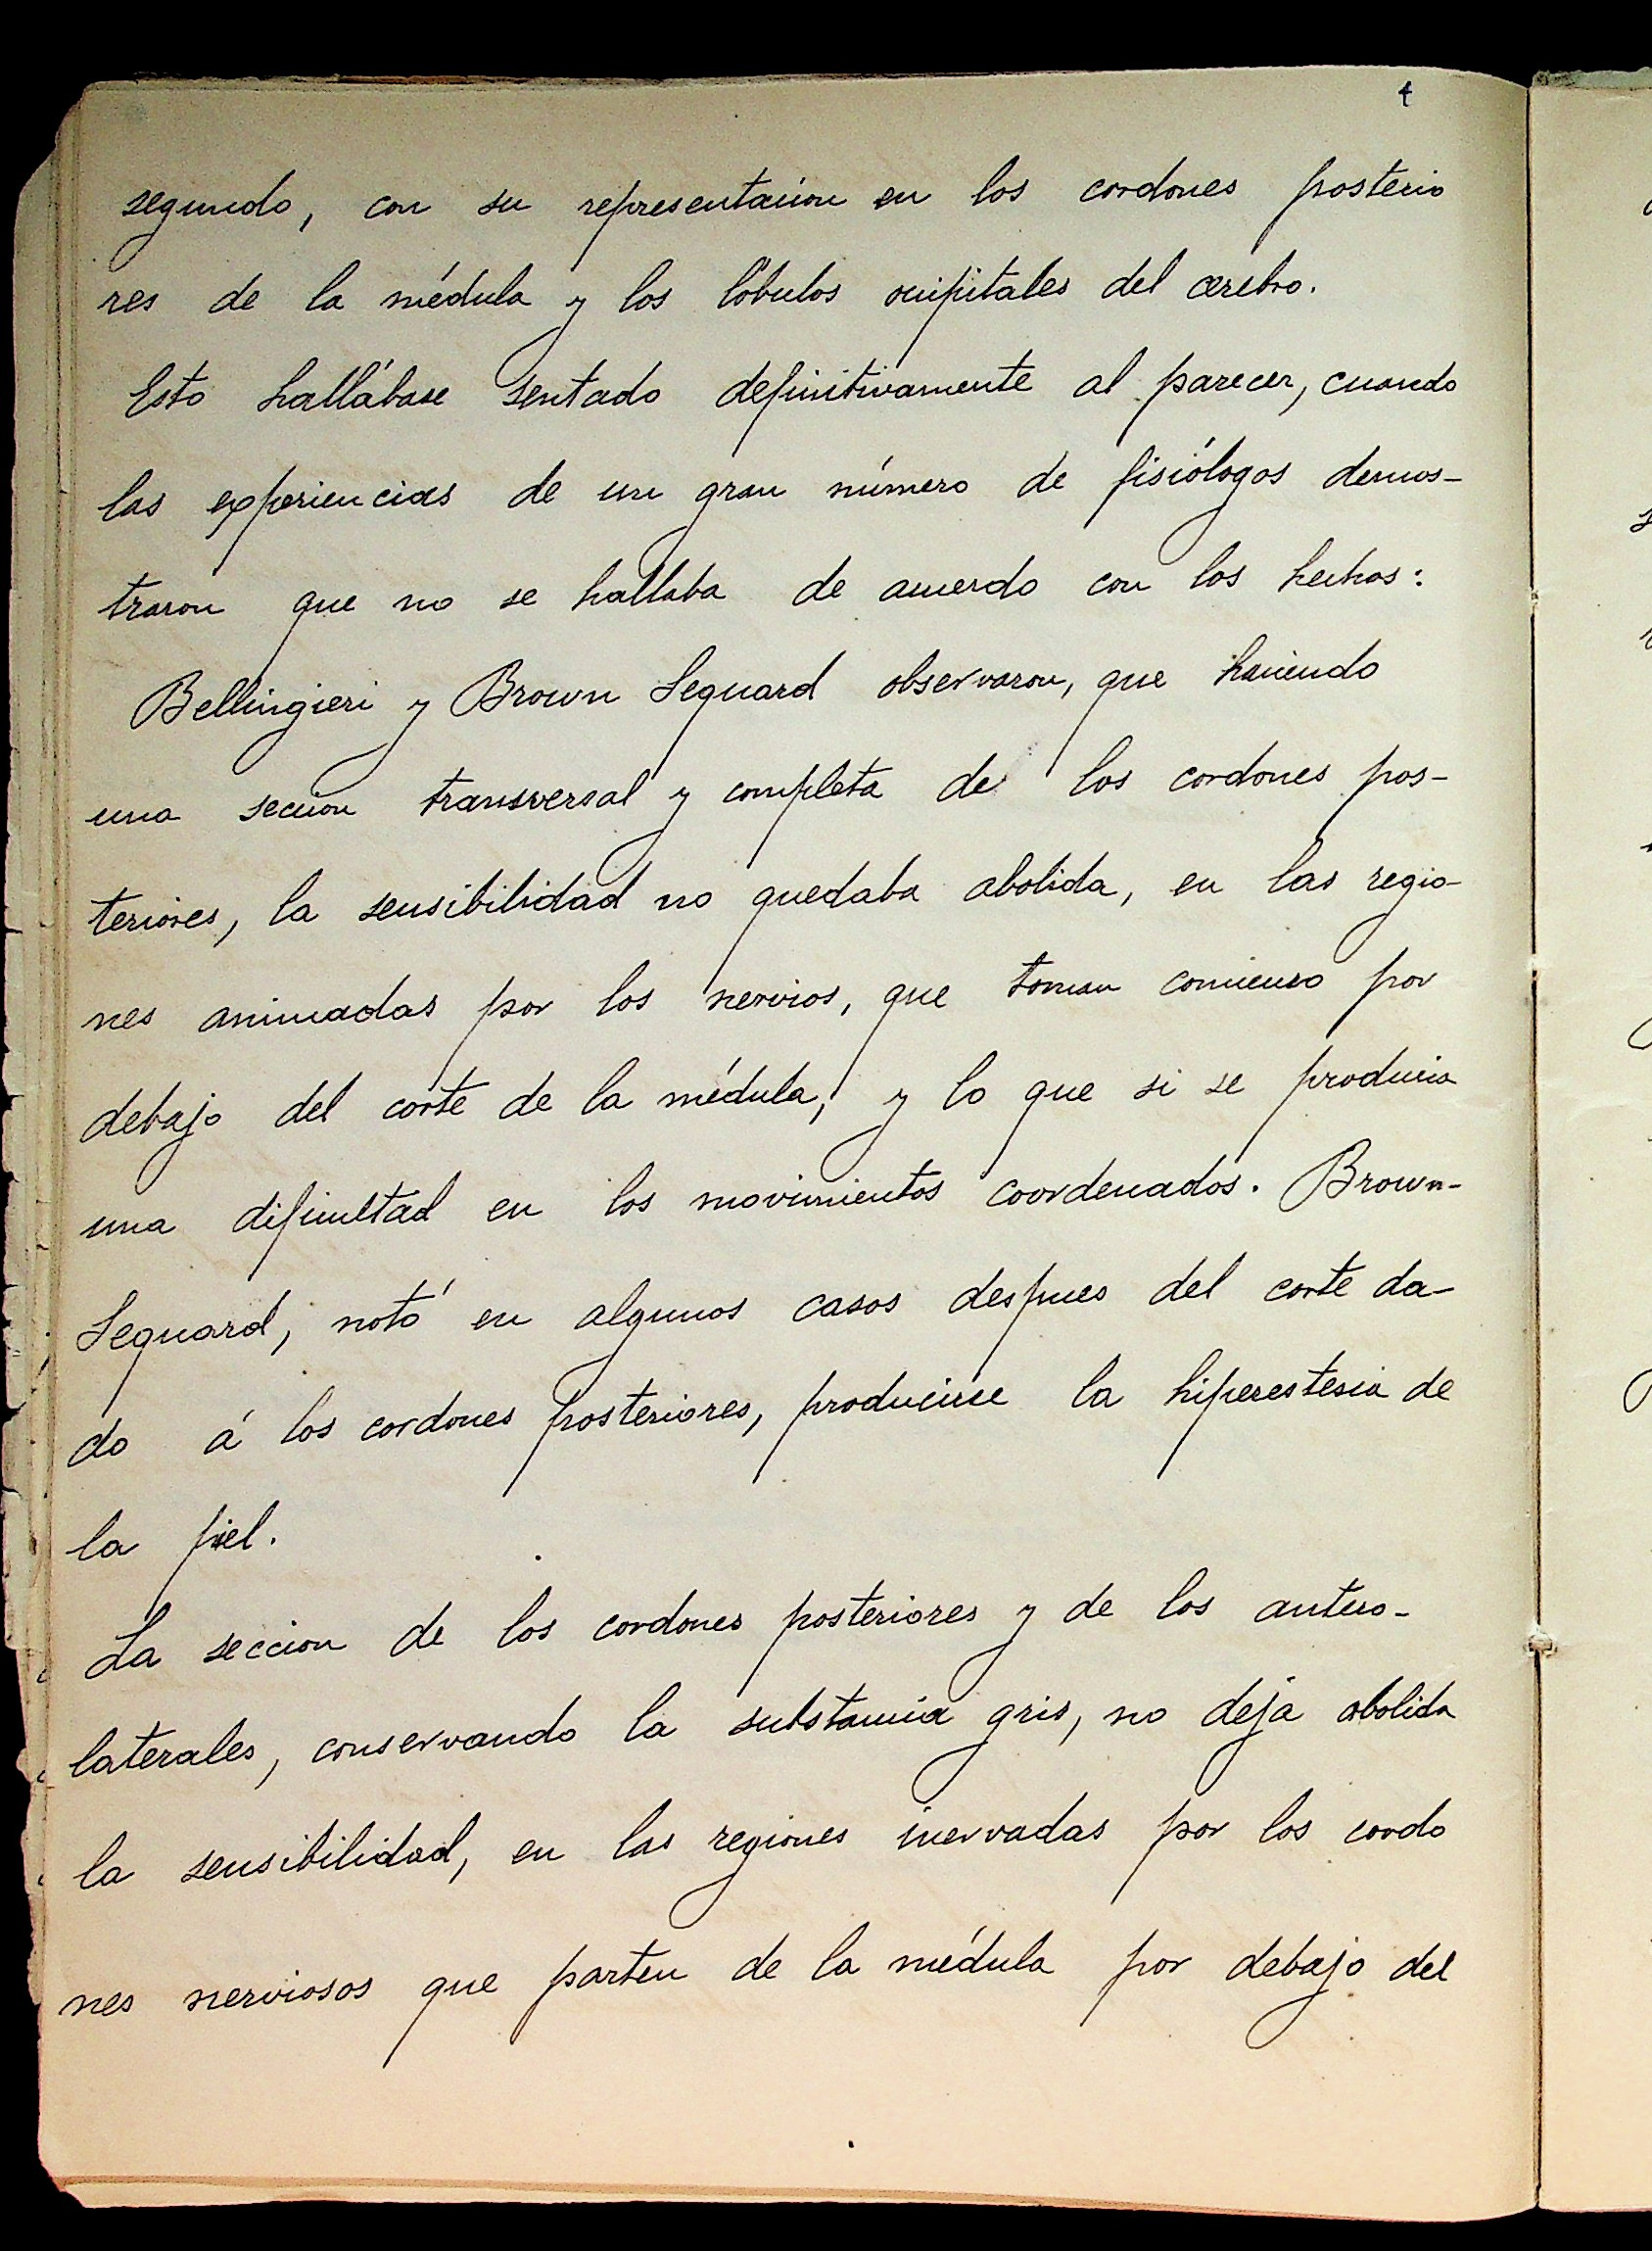 4
segundo, con su representacion en los cordones posterio
res de la médula y los lóbulos occipitales del cerebro.
Esto hallábase sentado definitivamente al parecer, cuando
las experiencias de un gran número de fisiólogos demos-
traron que no se hallaba de acuerdo con los hechos:
Bellingieri y Brown Sequard observaron, que haciendo
una seccion transversal y completa de los cordones pos-
teriores, la sensibilidad no quedaba abolida, en las regio-
nes animadas por los nervios, que toman comienzo por
debajo del corte de la médula, y lo que si se producia
una dificultad en los movimientos coordenados. Brown-
Sequard, notó en algunos casos despues del corte da-
do á los cordones posteriores, producirse la hiperestesia de
la piel.
La seccion de los cordones posteriores y de los antero-
laterales, conservando la substancia gris, no deja abolida
la sensibilidad, en las regiones inervadas por los cordo
nes nerviosos que parten de la médula por debajo del